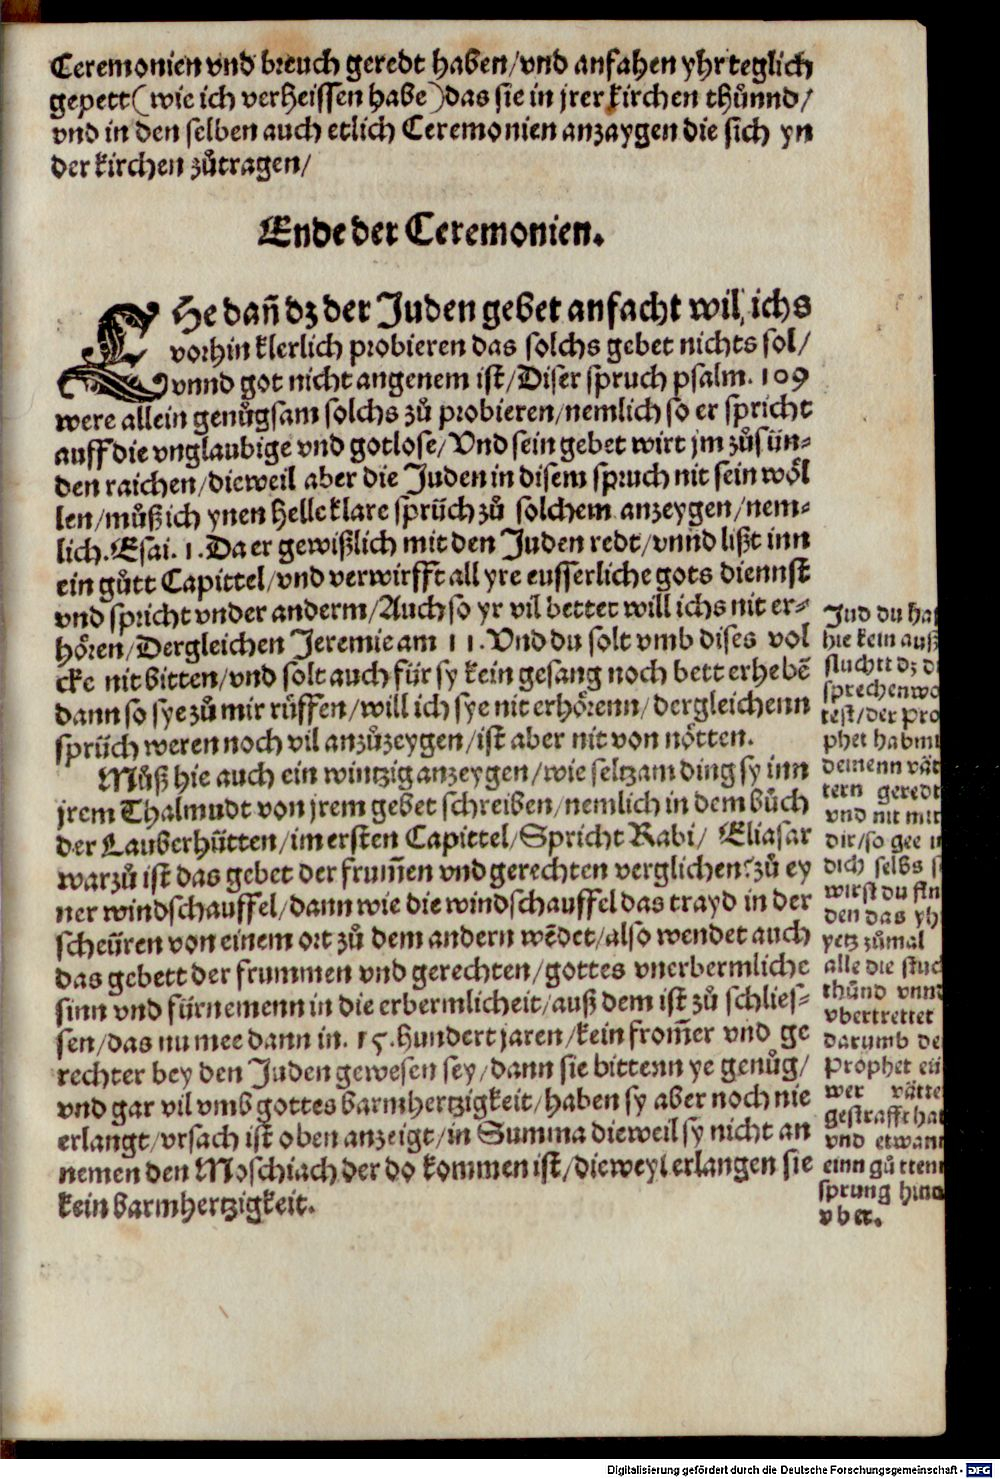 Ceremonien vnd breuch geredt haben/vnd anfahen yhr teglich
gepett(wie ich verheissen habe)das sie in jrer kirchen thůnnd/
vnd in den selben auch etlich Ceremonien anzaygen die sich yn
der kirchen zůtragen/
Ende der Ceremonien.
EHe dañ dz der Juden gebet anfacht wil, ichs
vorhin klerlich probieren das solchs gebet nichts sol/
vnnd got nicht angenem ist/Diser spruch psalm. 109
were allein genůgsam solchs zů probieren/nemlich so er spricht
auff die vnglaubige vnd gotlose/Vnd sein gebet wirt jm zů sün-
den raichen/dieweil aber die Juden in disem spruch nit sein wöl
len/můß ich ynen helle klare sprüch zů solchem anzeygen/nem-
lich. Esai. 1. Da er gewißlich mit den Juden redt/vnnd lißt inn
ein gůtt Capittel/vnd verwirfft all yre eusserliche gots diennst
vnd spricht vnder anderm/Auch so yr vil bettet will ichs nit er-
hören/Dergleichen Jeremie am 11. Vnd du solt vmb dises vol
cke nit bitten/vnd solt auch für sy kein gesang noch bett erhebẽ
dann so sye zů mir rüffen/will ich sye nit erhörenn/dergleichenn
sprüch weren noch vil anzůzeygen/ist aber nit von nötten.
Můß hie auch ein wintzig anzeygen/wie seltzam ding sy inn
jrem Thalmudt von jrem gebet schreiben/nemlich in dem bůch
der Lauberhütten/im ersten Capittel/Spricht Rabi/ Eliasar
warzů ist das gebet der frum̃en vnd gerechten verglichen? zů ey
ner windschauffel/dann wie die windschauffel das trayd in der
scheüren von einem ort zů dem andern wẽdet/also wendet auch
das gebett der frummen vnd gerechten/gottes vnerbermliche
sinn vnd fürnemenn in die erbermlicheit/auß dem ist zů schlies-
sen/das nu mee dann in. 15. hundert jaren/kein from̃er vnd ge
rechter bey den Juden gewesen sey/dann sie bittenn ye genůg/
vnd gar vil vmb gottes barmhertzigkeit/haben sy aber noch nie
erlangt/vrsach ist oben anzeigt/in Summa dieweil sy nicht an
nemen den Moschiach der do kommen ist/dieweyl erlangen sie
kein barmhertzigkeit.
Jud du
hie kein
fluchtt dz
sprechen
test/der
phet
deinenn
tern geredt
vnd nit mit
dir/so gee
dich selbs
wirst du
den das
yetz zůmal
alle die
thůnd
vbertrettet
darumb
Prophet
wer
gestrafft
vnd etwann
einn gůttenn
sprung
vber.
Digitalisierung gefördert durch die Deutsche Forschungsgemeinschaft - DFG